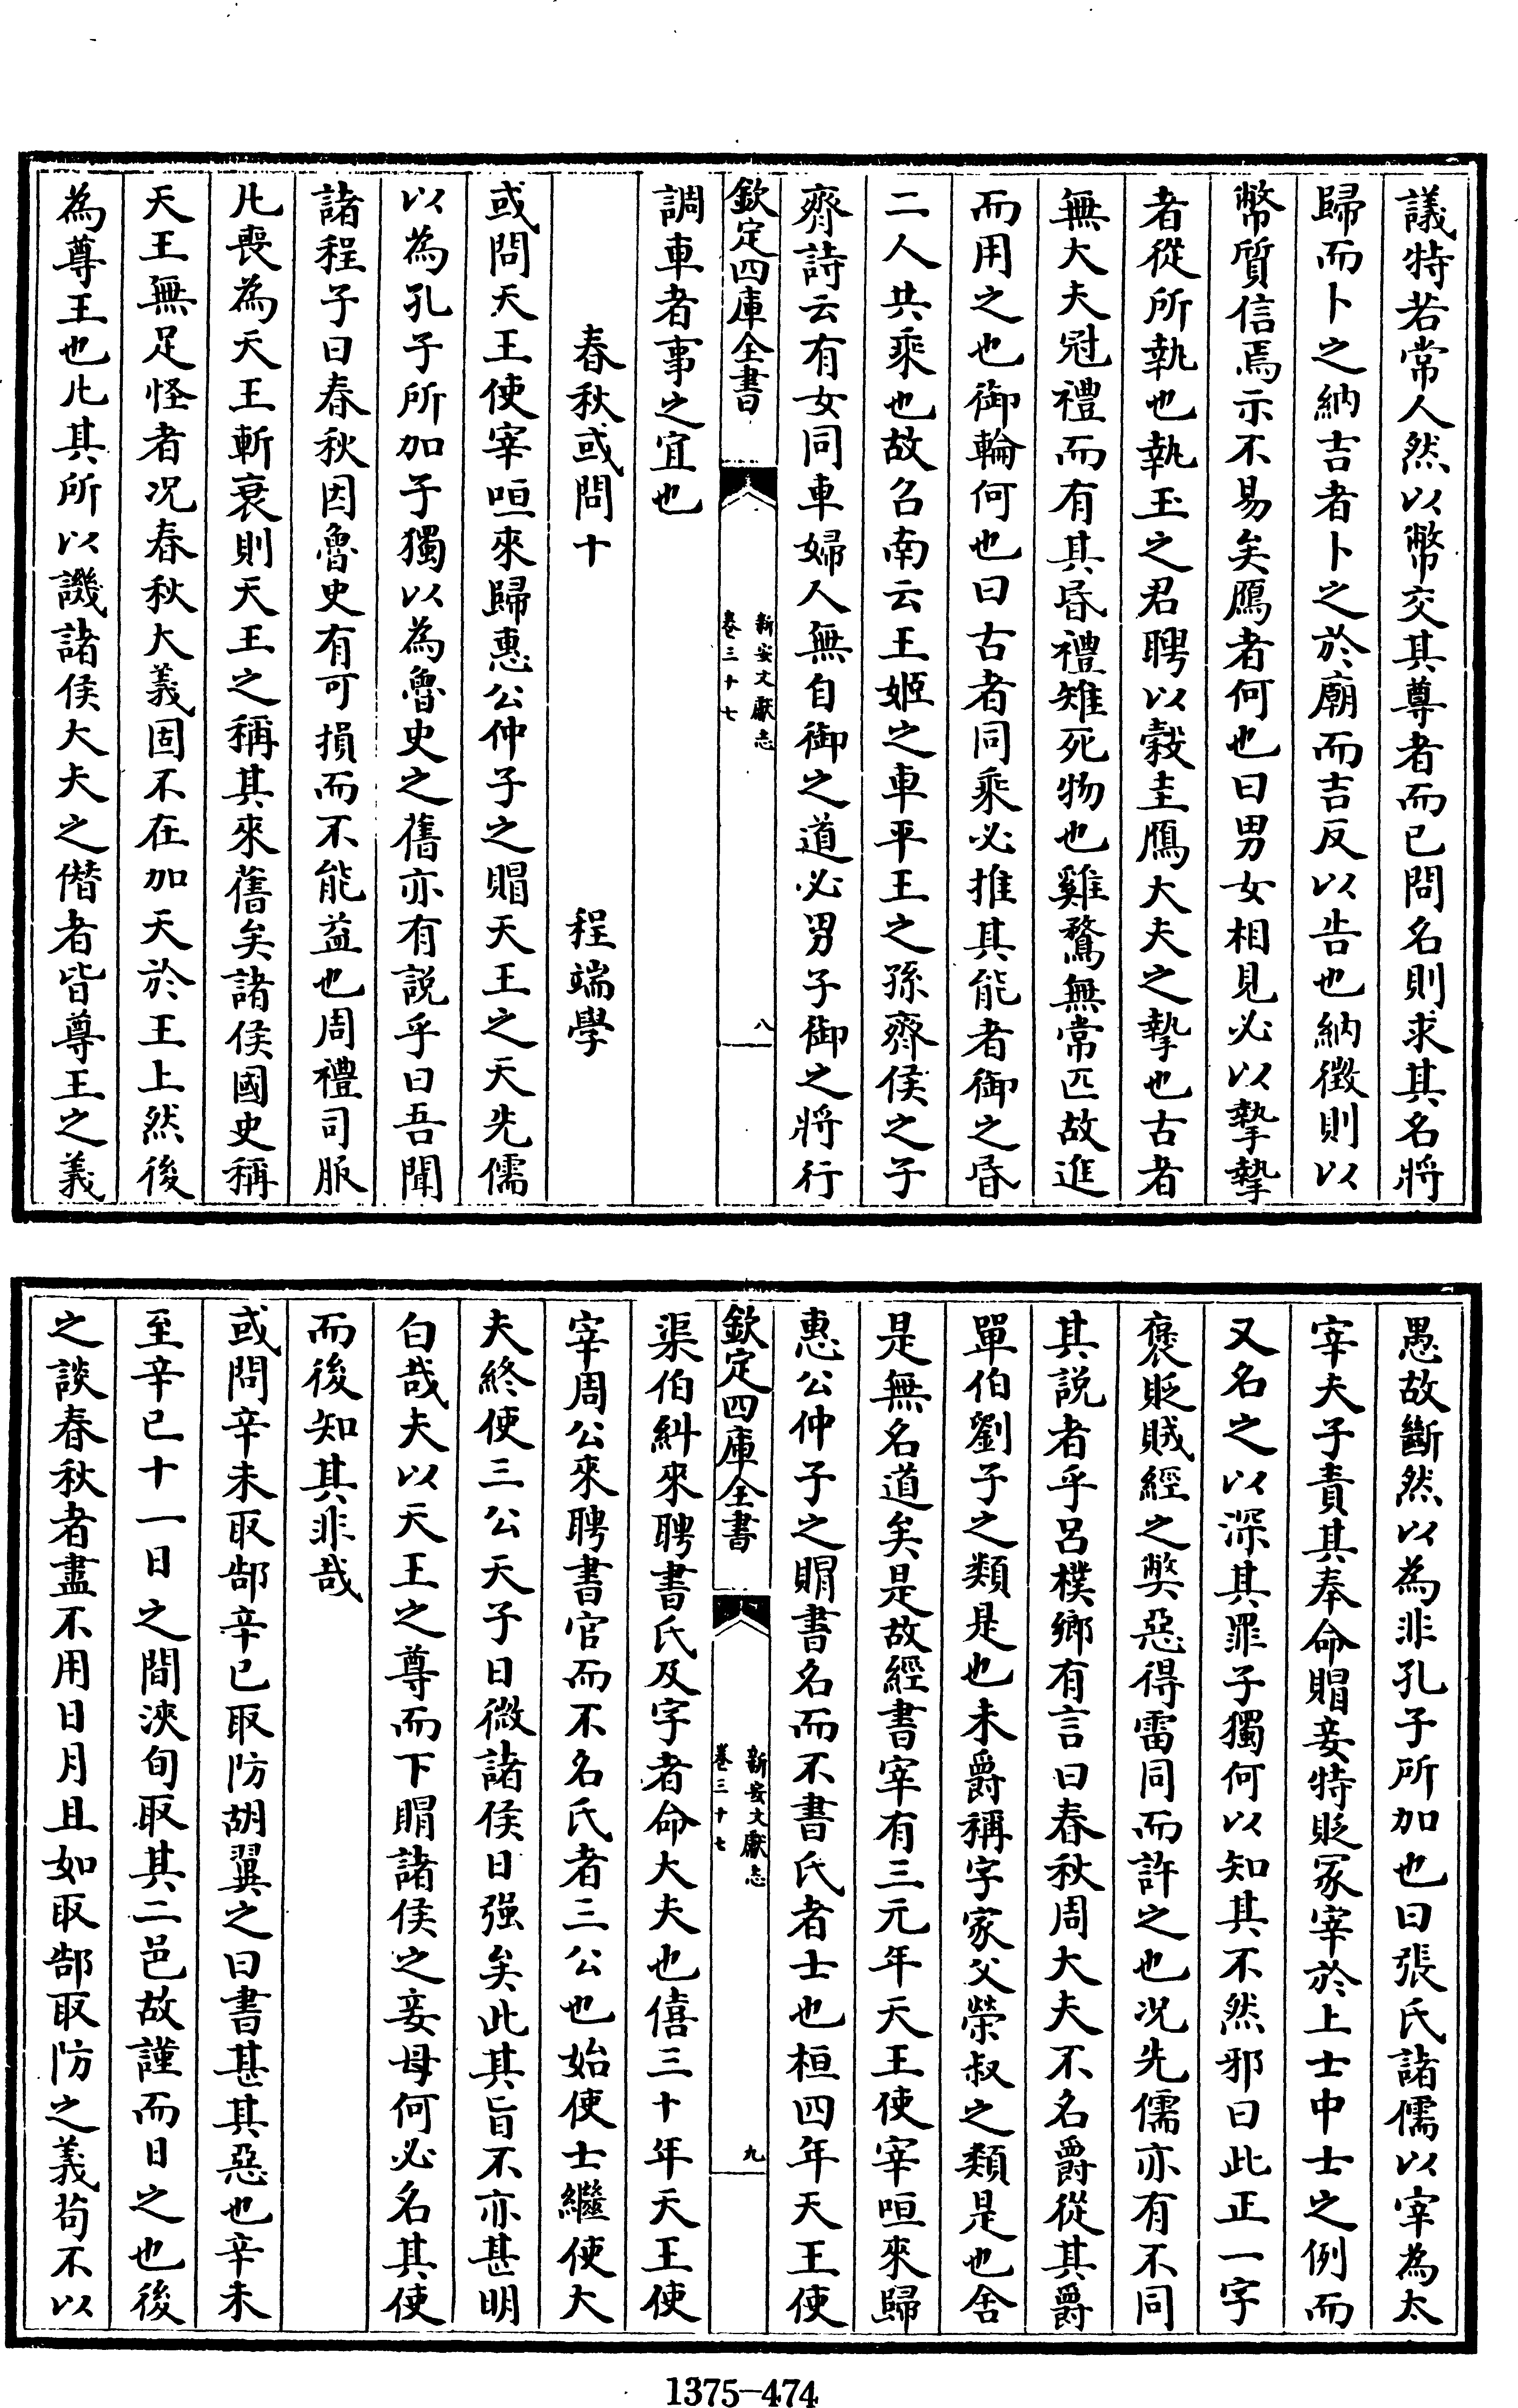 議特若常人然以幣交其尊者而已問名則求其名將
歸而卜之納吉者卜之於廟而吉反以告也納徴則以
幣質信焉示不易矣鴈者何也曰男女相見必以摯摯
者從所執也執玉之君聘以榖圭鴈大夫之摯也古者
無大夫冠禮而有其昏禮雉死物也雞鶩無常匹故進
而用之也御輪何也曰古者同乘必推其能者御之昏
二人共乘也故召南云王姬之車平王之孫齊侯之子
齊詩云有女同車婦人無自御之道必男子御之將行
欽定四庫全書
新安文獻志
卷三十七
八
調車者事之宜也
春秋或問十
程端學
或問天王使宰咺來歸惠公仲子之賵天王之天先儒
以為孔子所加子獨以為魯史之舊亦有説乎曰吾聞
諸程子曰春秋因魯史有可損而不能益也周禮司服
凡喪為天王斬衰則天王之稱其來舊矣諸侯國史稱
天王無足怪者况春秋大義固不在加天於王上然後
為尊王也凡其所以譏諸侯大夫之僭者皆尊王之義
愚故斷然以為非孔子所加也曰張氏諸儒以宰為太
宰夫子責其奉命賵妾特貶冢宰於上士中士之例而
又名之以深其罪子獨何以知其不然邪曰此正一字
褒貶賊經之弊惡得雷同而許之也况先儒亦有不同
其説者乎呂樸鄉有言曰春秋周大夫不名爵從其爵
單伯劉子之類是也未爵稱字家父榮叔之類是也舍
是無名道矣是故經書宰有三元年天王使宰咺來歸
惠公仲子之賵書名而不書氏者士也桓四年天王使
欽定四庫全書
新安文獻志
卷三十七
九
渠伯糾來聘書氏及字者命大夫也僖三十年天王使
宰周公來聘書官而不名氏者三公也始使士繼使大
夫終使三公天子日微諸侯日强矣此其旨不亦甚明
白哉夫以天王之尊而下賵諸侯之妾母何必名其使
而後知其非哉
或問辛未取郜辛巳取防胡翼之曰書甚其惡也辛未
至辛巳十一日之間浹旬取其二邑故謹而日之也後
之談春秋者盡不用日月且如取郜取防之義苟不以
1375-474